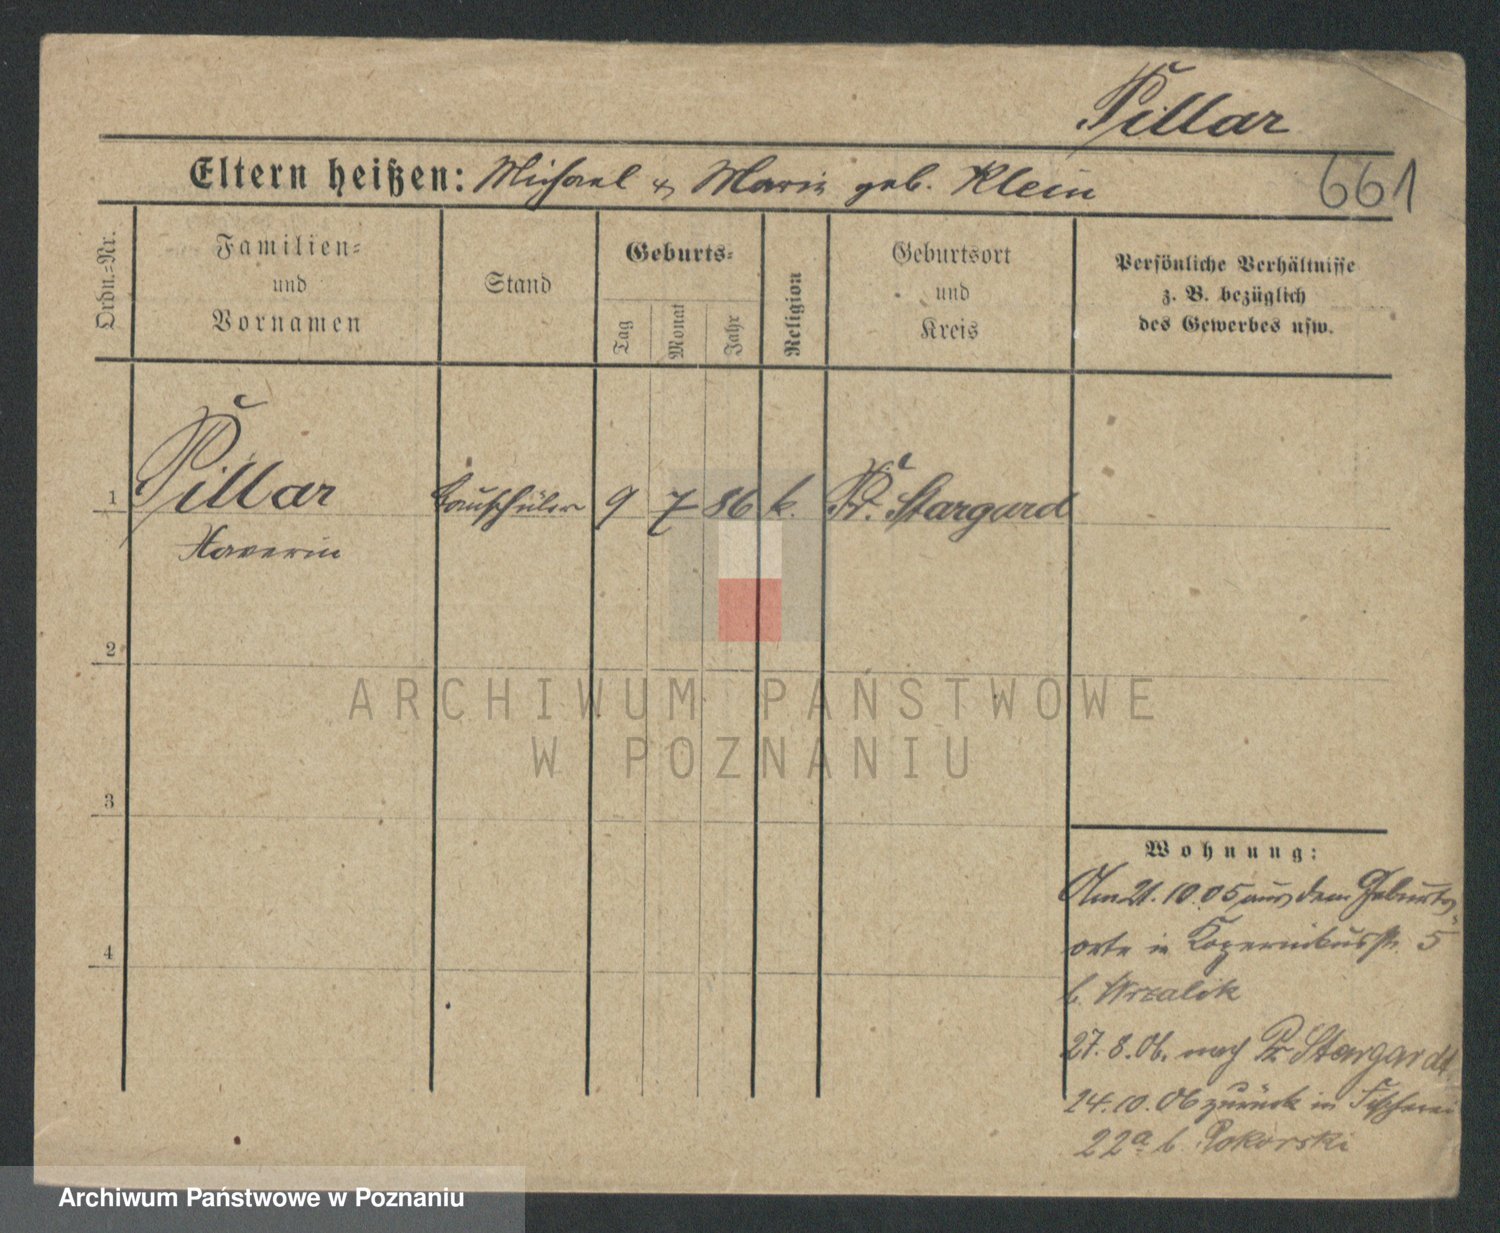 Pillar
Eltern heißen: Michael & Marie geb. Klein
661
Ordn.=Nr.
Familien=
und
Vornamen
Stand
Geburts=
Tag
Monat
Jahr
Religion
Geburtsort
und
Kreis
Persönliche Verhältnisse
z. B. bezüglich
des Gewerbes usw.
1 Pillar Bauschüler 9 7 86 k. Pr. Stargard
2
3
4
ARCHIWUM PAŃSTWOWE
W POZNANIU
Wohnung:
Am 21.10.05 aus dem Geburts-
orte in Kopernikusstr. 5
b. Wrzalik
27.8.06. nach Pr. Stargardt
24.10.06 zurück in Fischerei
22a b. Pokorski
Archiwum Państwowe w Poznaniu